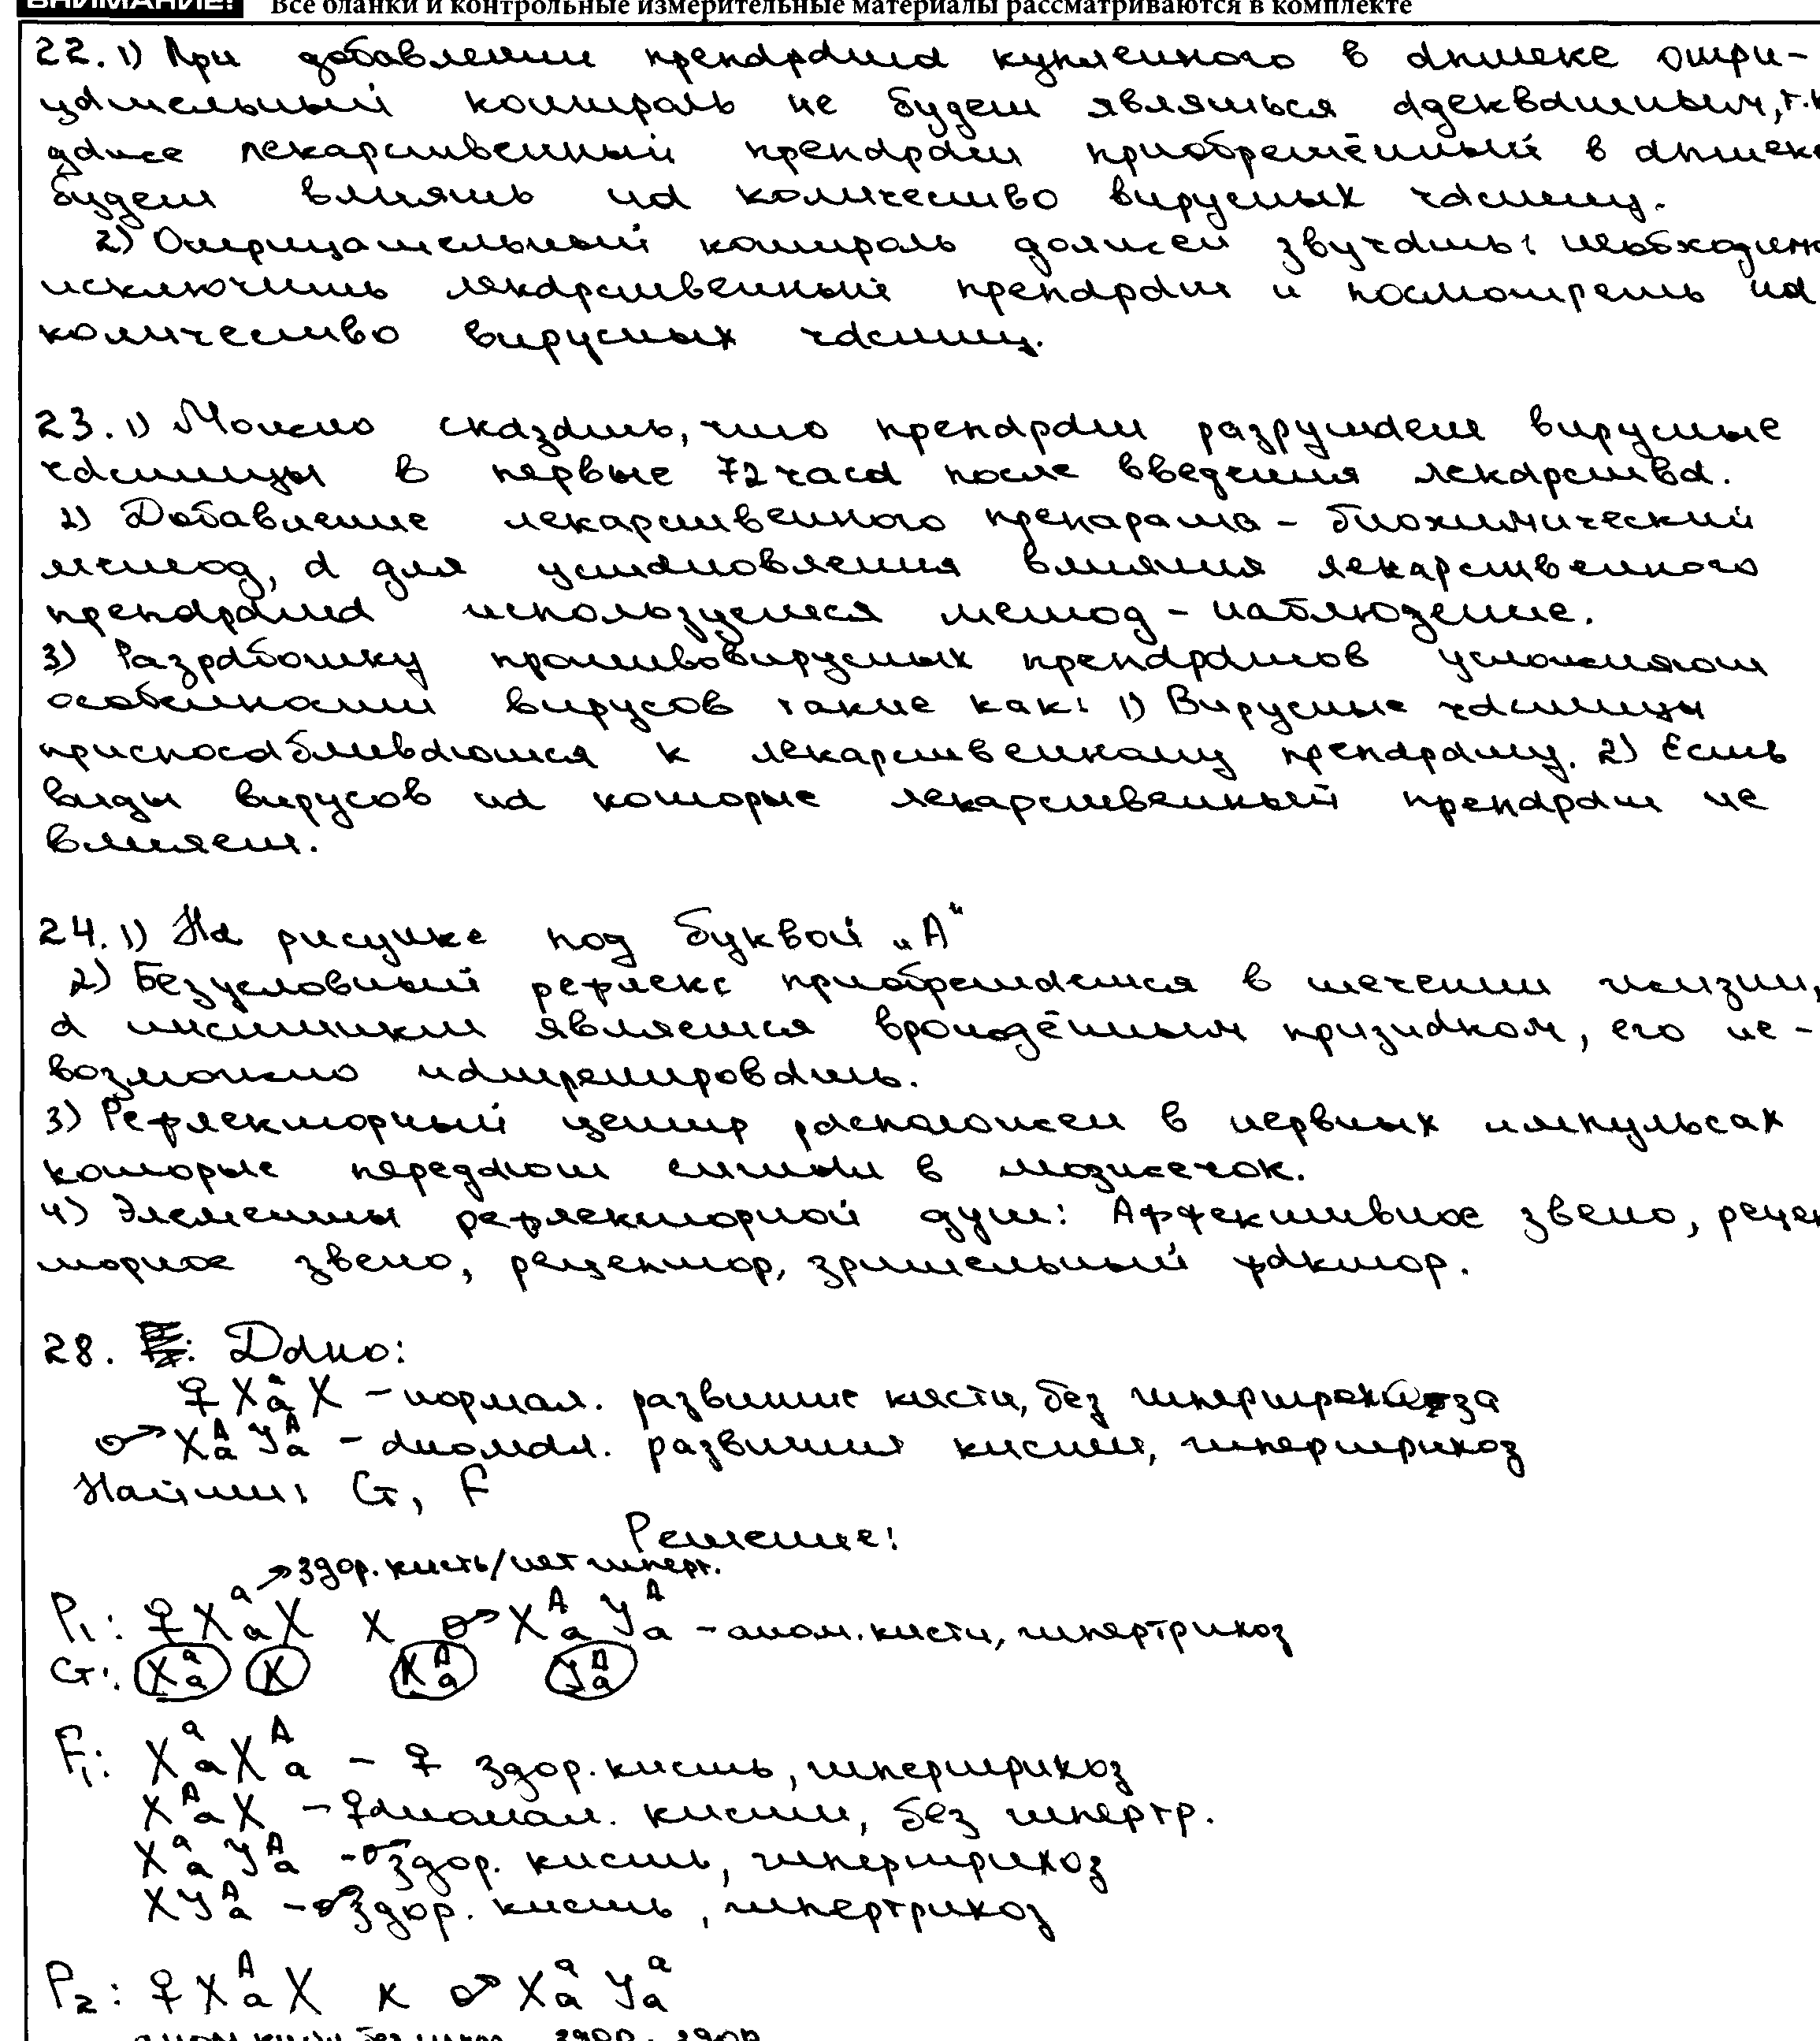 ВНИМАНИЕ! Все бланки и контрольные измерительные материалы рассматриваются в комплекте
22. 1) При добавлении препарата купленного в аптеке отри-
цательный контроль не будет являться адекватным, т.к
даже лекарственный препарат приобретённый в аптеке
будет влиять на количество вирусных частиц.
2) Отрицательный контроль должен звучать: необходимо
исключить лекарственный препарат и посмотреть на
количество вирусных частиц.
23. 1) Можно сказать, что препарат разрушает вирусные
частицы в первые 72 часа после введения лекарства.
2) Добавление лекарственного препарата - биохимический
метод, а для установления влияния лекарственного
препарата используется метод - наблюдение.
3) Разработку противовирусных препаратов усложняют
особенности вирусов такие как: 1) Вирусные частицы
приспосабливаются к лекарственному препарату. 2) Есть
виды вирусов на которые лекарственный препарат не
влияет.
24. 1) На рисунке под буквой „А“
2) Безусловный рефлекс приобретается в течении жизни,
а инстинкт является врождённым признаком, его не-
возможно натренировать.
3) Рефлекторный центр расположен в нервных импульсах
которые передают сигналы в мозжечок.
4) Элементы рефлекторной дуги: Аффективное звено, рецеп
торное звено, рецептор, зрительный фактор.
28. Дано:
♀ XᵃₐX - нормал. развитие кисти, без гипертрихоза
♂ XᴬₐYᴬₐ - аномал. развития кисти, гипертрихоз
Найти: G, F
Решение:
→ здор. кисть/нет гиперт.
P₁: ♀ XᵃₐX x ♂ XᴬₐYᴬₐ - аном. кисти, гипертрихоз
G: Xᵃₐ X Xᴬₐ Yᴬₐ
F₁: XᵃₐXᴬₐ - ♀ здор. кисть, гипертрихоз
XᴬₐX - ♀ аномал. кисти, без гипертр.
XᵃₐYᴬₐ - ♂ здор. кисть, гипертрихоз
XYᴬₐ - ♂ здор. кисть, гипертрихоз
P₂: ♀ XᴬₐX x ♂ XᵃₐYᵃₐ